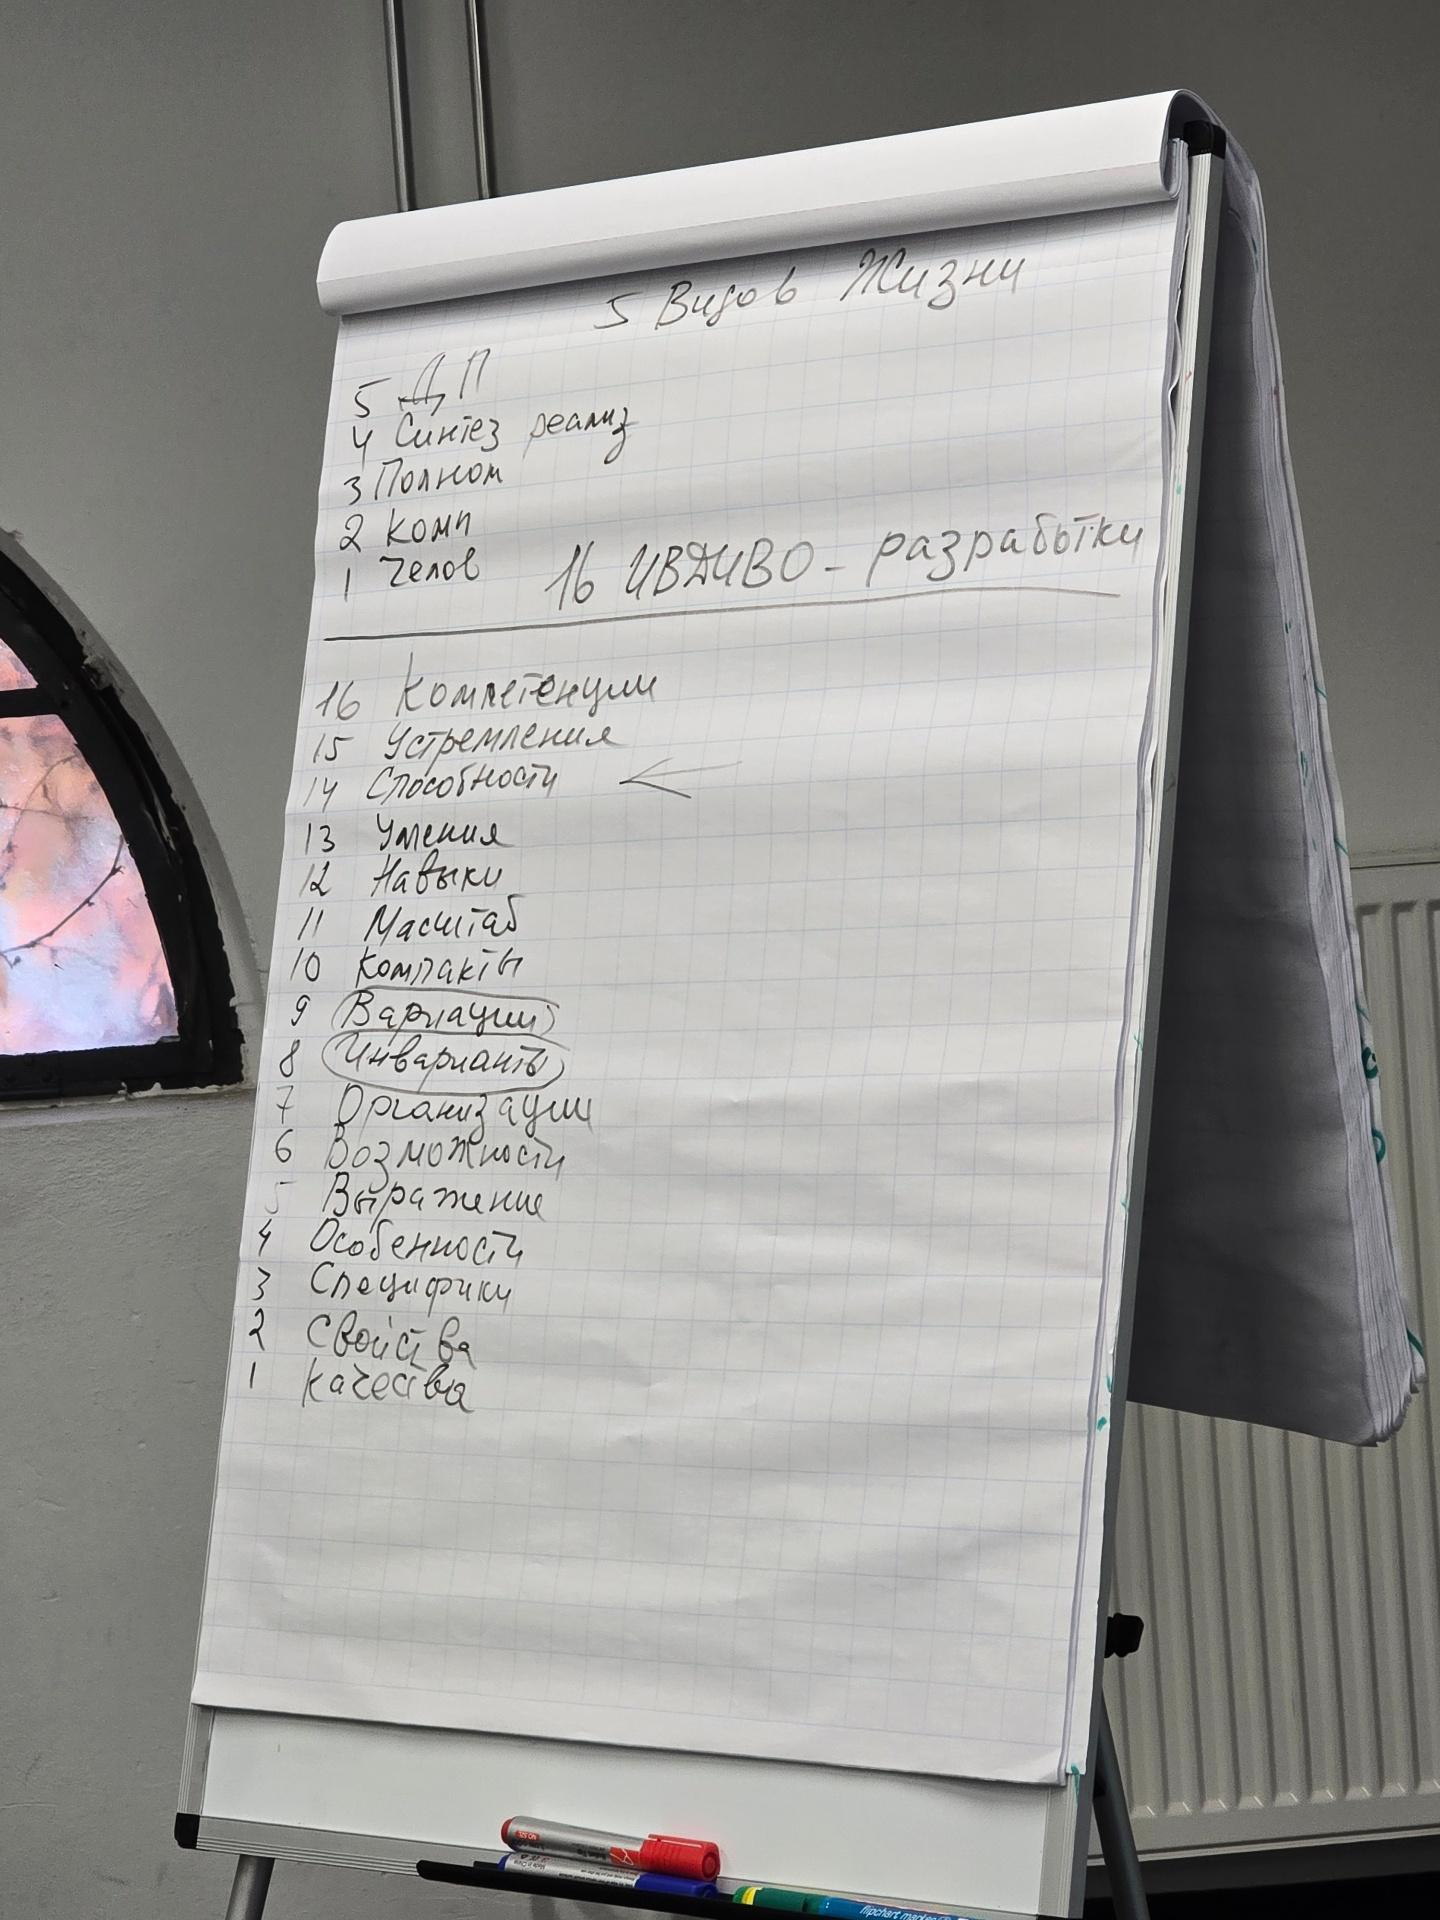 5 Видов Жизни
5 ДП
4 Синтез реализ
3 Полном
2 Комп
1 Челов
16 ИВДИВО - разработки
16 Компетенции
15 Устремления
14 Способности ←
13 Умения
12 Навыки
11 Масштаб
10 Компакты
9 Вариации
8 Инварианты
7 Организации
6 Возможности
5 Выражение
4 Особенности
3 Специфики
2 Свойства
1 Качества
flipchart marker